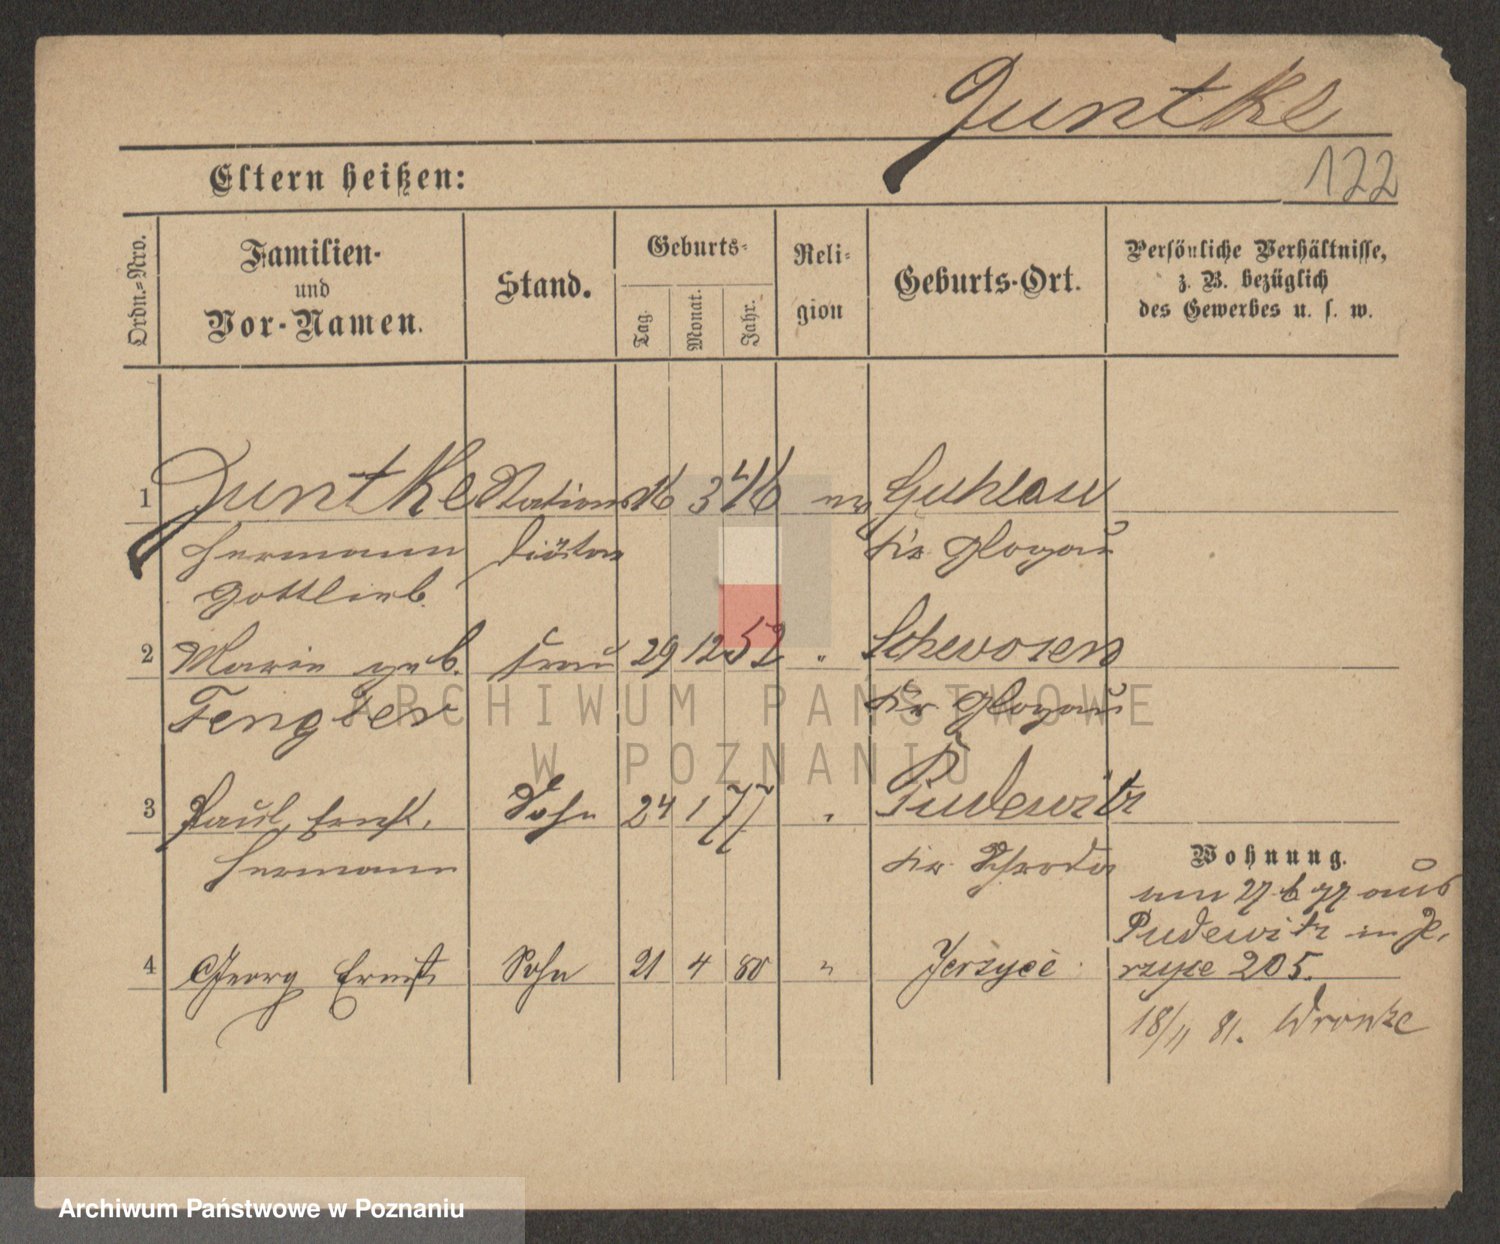 Juntke
122
Eltern heißen:
Ordn.-Nro.
Familien-
und
Vor-Namen.
Stand.
Geburts-
Tag.
Monat.
Jahr.
Reli-
gion
Geburts-Ort.
Persönliche Verhältnisse,
z. B. bezüglich
des Gewerbes u. s. w.
1 Juntke Stations 16 3 46 ev Guhlau
Hermann Diätar Kr. Glogau
Gottlieb.
2 Marie geb. Frau 29 12 52 " Schwosen
Tengler Kr Glogau
3 Paul, Ernst, Sohn 24 1 77 " Pudewitz
Hermann Kr. Schroda
Wohnung.
am 27 6 77 aus
Pudewitz in Je,
4 Georg Ernst Sohn 21 4 80 " Jerzyce rzyce 205.
18/11 81. Wronke
ARCHIWUM PAŃSTWOWE
W POZNANIU
Archiwum Państwowe w Poznaniu